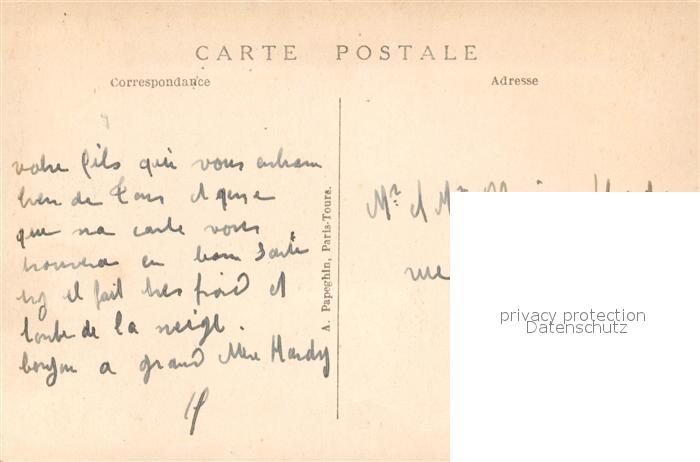 CARTE POSTALE
Correspondance
Adresse
votre fils qui vous embrasse
bien de
que ma carte vous
trouvera en bonne santé
il fait tres froid et
tombe de la neige.
bonjour a grand Mere Hardy
A. Papeghin, Paris-Tours.
Mr. et Mme
rue
privacy protection
Datenschutz